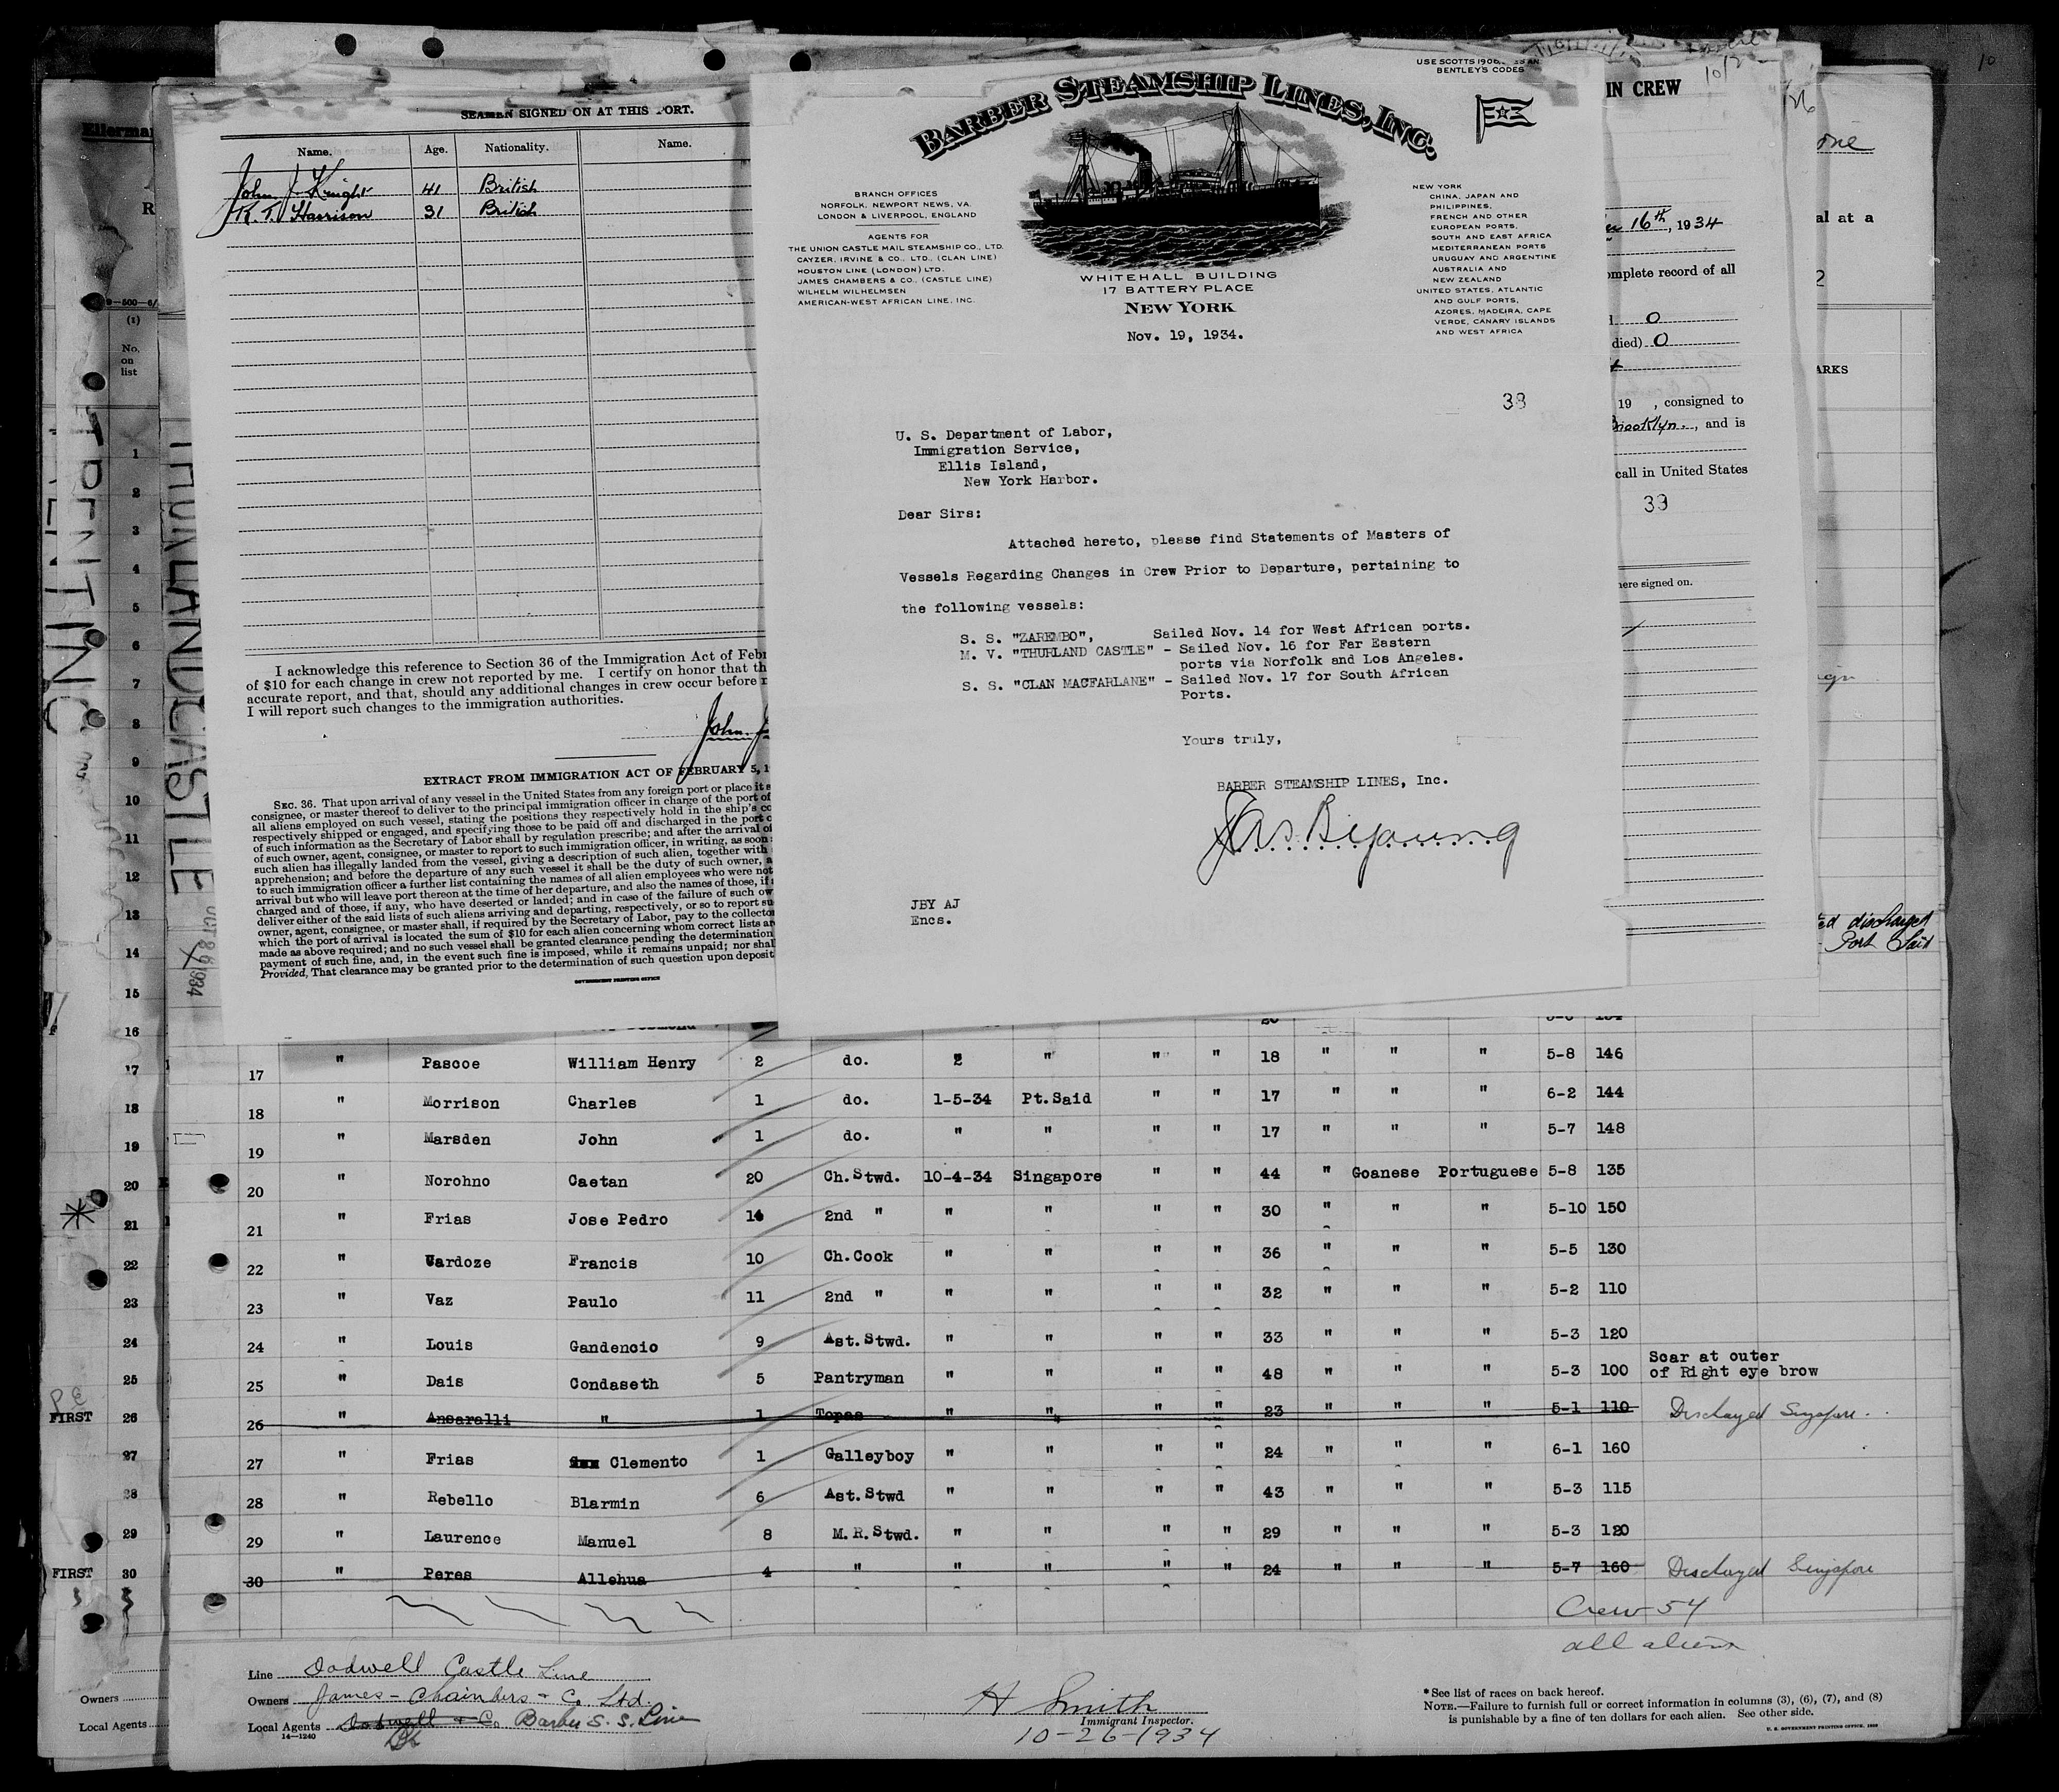 SEAMEN SIGNED ON AT THIS PORT.
Name. Age. Nationality. Name.
John J. Knight 41 British
R. T. Harrison 31 British
I acknowledge this reference to Section 36 of the Immigration Act of Febr
of $10 for each change in crew not reported by me. I certify on honor that th
accurate report, and that, should any additional changes in crew occur before
I will report such changes to the immigration authorities.
John J
EXTRACT FROM IMMIGRATION ACT OF FEBRUARY 5, 1
SEC. 36. That upon arrival of any vessel in the United States from any foreign port or place it s
consignee, or master thereof to deliver to the principal immigration officer in charge of the port of
all aliens employed on such vessel, stating the positions they respectively hold in the ship's co
respectively shipped or engaged, and specifying those to be paid off and discharged in the port o
of such information as the Secretary of Labor shall by regulation prescribe; and after the arrival of
of such owner, agent, consignee, or master to report to such immigration officer, in writing, as soon
such alien has illegally landed from the vessel, giving a description of such alien, together with
apprehension; and before the departure of any such vessel it shall be the duty of such owner, a
to such immigration officer a further list containing the names of all alien employees who were not
arrival but who will leave port thereon at the time of her departure, and also the names of those, if
charged and of those, if any, who have deserted or landed; and in case of the failure of such ow
deliver either of the said lists of such aliens arriving and departing, respectively, or so to report su
owner, agent, consignee, or master shall, if required by the Secretary of Labor, pay to the collector
which the port of arrival is located the sum of $10 for each alien concerning whom correct lists ar
made as above required; and no such vessel shall be granted clearance pending the determination
payment of such fine, and, in the event such fine is imposed, while it remains unpaid; nor shal
Provided, That clearance may be granted prior to the determination of such question upon deposit
GOVERNMENT PRINTING OFFICE
USE SCOTTS
BENTLEY'S CODES
BARBER STEAMSHIP LINES, INC.
BRANCH OFFICES
NORFOLK, NEWPORT NEWS, VA.
LONDON & LIVERPOOL, ENGLAND
AGENTS FOR
THE UNION CASTLE MAIL STEAMSHIP CO., LTD.
CAYZER, IRVINE & CO., LTD., (CLAN LINE)
HOUSTON LINE (LONDON) LTD.
JAMES CHAMBERS & CO., (CASTLE LINE)
WILHELM WILHELMSEN
AMERICAN-WEST AFRICAN LINE, INC.
NEW YORK
CHINA, JAPAN AND
PHILIPPINES,
FRENCH AND OTHER
EUROPEAN PORTS,
SOUTH AND EAST AFRICA
MEDITERRANEAN PORTS
URUGUAY AND ARGENTINE
AUSTRALIA AND
NEW ZEALAND
UNITED STATES, ATLANTIC
AND GULF PORTS,
AZORES, MADEIRA, CAPE
VERDE, CANARY ISLANDS
AND WEST AFRICA
WHITEHALL BUILDING
17 BATTERY PLACE
NEW YORK
Nov. 19, 1934.
38
U. S. Department of Labor,
Immigration Service,
Ellis Island,
New York Harbor.
Dear Sirs:
Attached hereto, please find Statements of Masters of
Vessels Regarding Changes in Crew Prior to Departure, pertaining to
the following vessels:
S. S. "ZAREMBO", Sailed Nov. 14 for West African ports.
M. V. "THURLAND CASTLE" - Sailed Nov. 16 for Far Eastern
ports via Norfolk and Los Angeles.
S. S. "CLAN MACFARLANE" - Sailed Nov. 17 for South African
Ports.
Yours truly,
BARBER STEAMSHIP LINES, Inc.
Jas. B. Young
JBY AJ
Encs.
IN CREW
16th, 1934
omplete record of all
0
died) 0
19 , consigned to
Brooklyn, and is
call in United States
39
here signed on.
al at a
2
ARKS
ed discharged
Port Said
Ellerma
R
(1)
No.
on
list
THURLANDCASTLE
OCT 26 1934
1
2
3
4
5
6
7
8
9
10
11
12
13
14
15
16
17
18
19
20
21
22
23
24
25
FIRST 26
27
28
29
FIRST 30
Owners
Local Agents
17 " Pascoe William Henry 2 do. 2 " " " 18 " " " 5-8 146
18 " Morrison Charles 1 do. 1-5-34 Pt.Said " " 17 " " " 6-2 144
19 " Marsden John 1 do. " " " " 17 " " " 5-7 148
20 " Norohno Caetan 20 Ch.Stwd. 10-4-34 Singapore " " 44 " Goanese Portuguese 5-8 135
21 " Frias Jose Pedro 14 2nd " " " " " 30 " " " 5-10 150
22 " Vardoze Francis 10 Ch.Cook " " " " 36 " " " 5-5 130
23 " Vaz Paulo 11 2nd " " " " " 32 " " " 5-2 110
24 " Louis Gandencio 9 Ast.Stwd. " " " " 33 " " " 5-3 120
25 " Dais Condaseth 5 Pantryman " " " " 48 " " " 5-3 100 Scar at outer
of Right eye brow
26 " Ansaralli " 1 Topas " " " " 23 " " " 5-1 110 Discharged Singapore.
27 " Frias Clemento 1 Galleyboy " " " " 24 " " " 6-1 160
28 " Rebello Blarmin 6 Ast.Stwd " " " " 43 " " " 5-3 115
29 " Laurence Manuel 8 M.R.Stwd. " " " " 29 " " " 5-3 120
30 " Peres Allehua 4 " " " " " 24 " " " 5-7 160 Discharged Singapore
Crew 54
all aliens
Line Dodwell Castle Line
Owners James Chambers & Co. Ltd.
Local Agents Dodwell & Co. Barber S. S. Line
14—1240
H Smith
Immigrant Inspector.
10-26-1934
* See list of races on back hereof.
NOTE.—Failure to furnish full or correct information in columns (3), (6), (7), and (8)
is punishable by a fine of ten dollars for each alien. See other side.
U. S. GOVERNMENT PRINTING OFFICE